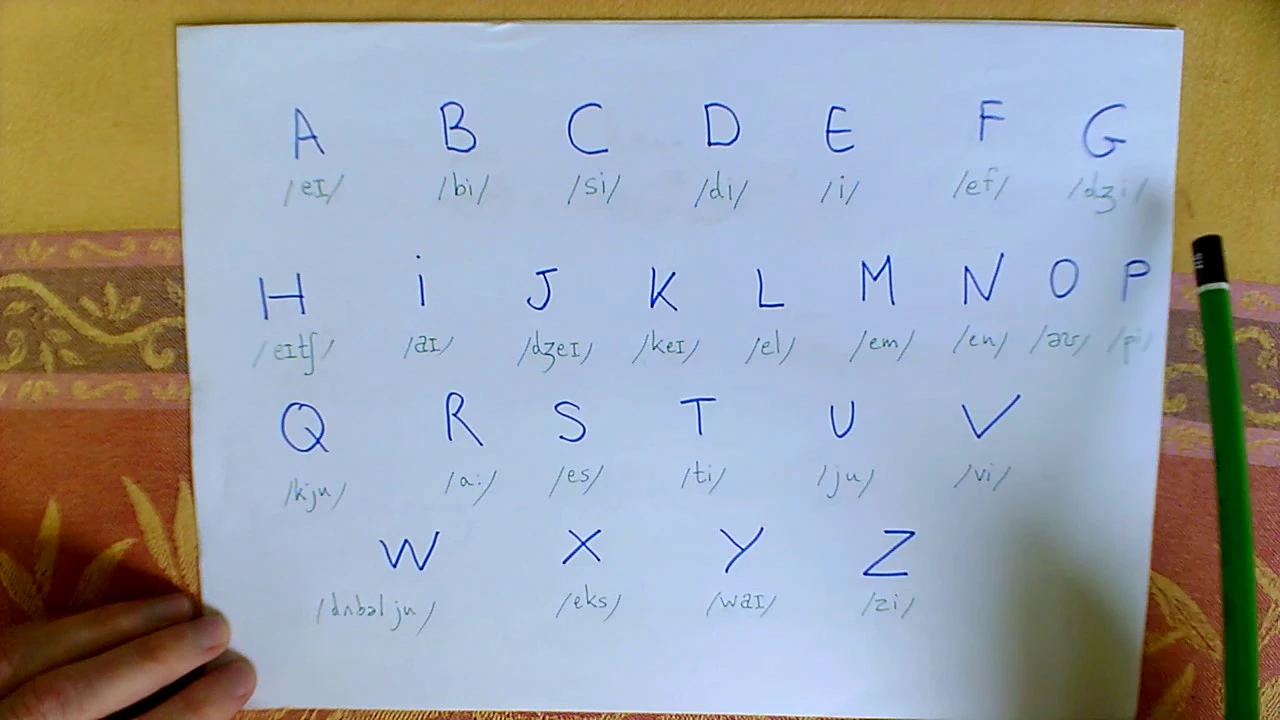 A B C D E F G
/eɪ/ /bi/ /si/ /di/ /i/ /ef/ /dʒi/
H i J K L M N O P
/eɪtʃ/ /aɪ/ /dʒeɪ/ /keɪ/ /el/ /em/ /en/ /əʊ/ /pi/
Q R S T U V
/kju/ /a:/ /es/ /ti/ /ju/ /vi/
W X Y Z
/dʌbəl ju/ /eks/ /waɪ/ /zi/
HB